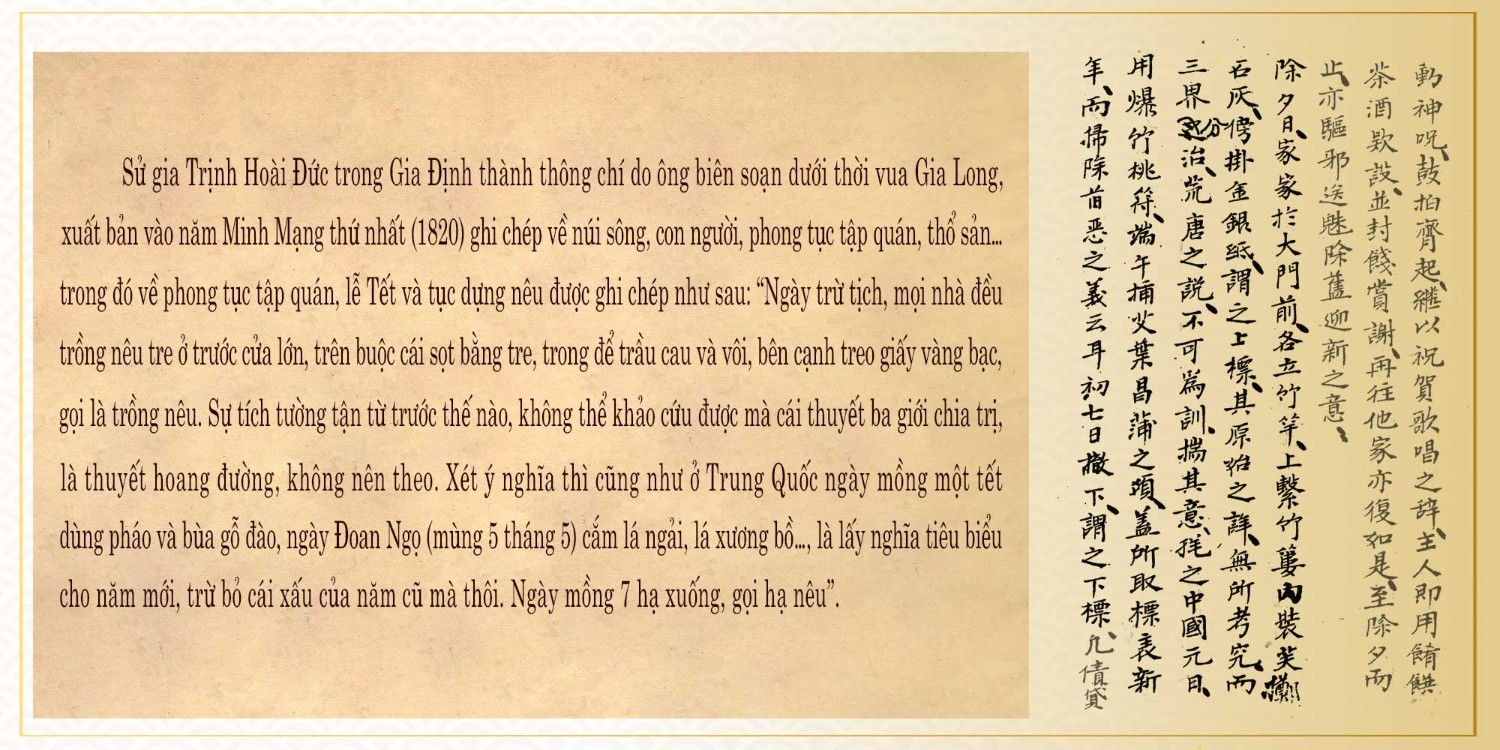 Sử gia Trịnh Hoài Đức trong Gia Định thành thông chí do ông biên soạn dưới thời vua Gia Long,
xuất bản vào năm Minh Mạng thứ nhất (1820) ghi chép về núi sông, con người, phong tục tập quán, thổ sản...
trong đó về phong tục tập quán, lễ Tết và tục dựng nêu được ghi chép như sau: “Ngày trừ tịch, mọi nhà đều
trồng nêu tre ở trước cửa lớn, trên buộc cái sọt bằng tre, trong để trầu cau và vôi, bên cạnh treo giấy vàng bạc,
gọi là trồng nêu. Sự tích tường tận từ trước thế nào, không thể khảo cứu được mà cái thuyết ba giới chia trị,
là thuyết hoang đường, không nên theo. Xét ý nghĩa thì cũng như ở Trung Quốc ngày mồng một tết
dùng pháo và bùa gỗ đào, ngày Đoan Ngọ (mùng 5 tháng 5) cắm lá ngải, lá xương bồ..., là lấy nghĩa tiêu biểu
cho năm mới, trừ bỏ cái xấu của năm cũ mà thôi. Ngày mồng 7 hạ xuống, gọi hạ nêu”.
動神呪、鼓拍齊起、継以祝賀歌唱之辞、主人即用餚饌
茶酒欵設、並封餞賞謝、再往他家亦復如是、至除夕而
止、亦驅邪送魅除舊迎新之意、
除夕日、家家於大門前、各立竹竿、上繫竹簍内裝芙榔
石灰、傍掛金銀紙、謂之上標、其原始之詳、無所考究、而
三界分治、荒唐之説、不可爲訓、揣其意、之中國元日、
用爆竹桃符、端午揷艾葉昌蒲之類、盖所取標表新
年、而掃除旧恶之義云耳初七日撤下、謂之下標、凡債貸